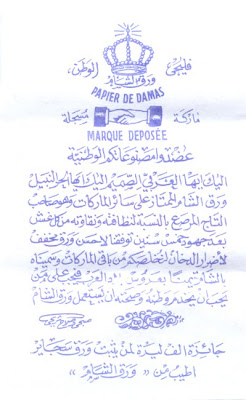 فليحيى الوطن،
ورق الشام
PAPIER DE DAMAS
ماركة مسجلة
MARQUE DEPOSÉE
عضدوا مصنوعاتكم الوطنية
اليك ايها العربي الصميم اليك ايها الحر النبيل
ورق الشام الممتاز على سائر الماركات وهو صاحب
التاج المرصع بالنسبة لنظافته ونقاوته من كل غش
بعد جهود خمس سنين توفقنا لاحسن ورق مخفف
لأضرار الدخان من باقي الماركات وسميناه
بالشام تيمنا فحي على من
يحب ان يخدم وطنه وصنعته ان يستعمل ورق الشام
جائزة الف ليرة لمن يثبت ورق سجاير
اطيب من «ورق الشام»